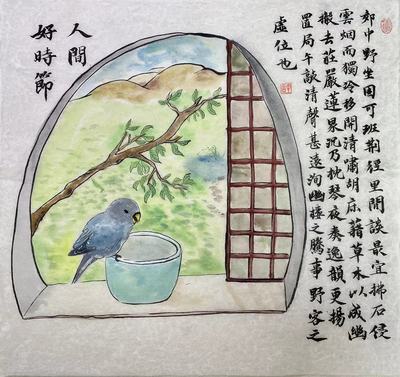 郊中野坐固可班荆徑里閒談最宜拂石侵
雲烟而獨冷移開清嘯胡床藉草木以成幽
撤去莊嚴蓮界況乃枕琴夜奏逸韻更揚
置局午敲清聲甚遠洵幽棲之騰事野客之
虛位也
人間
好時節